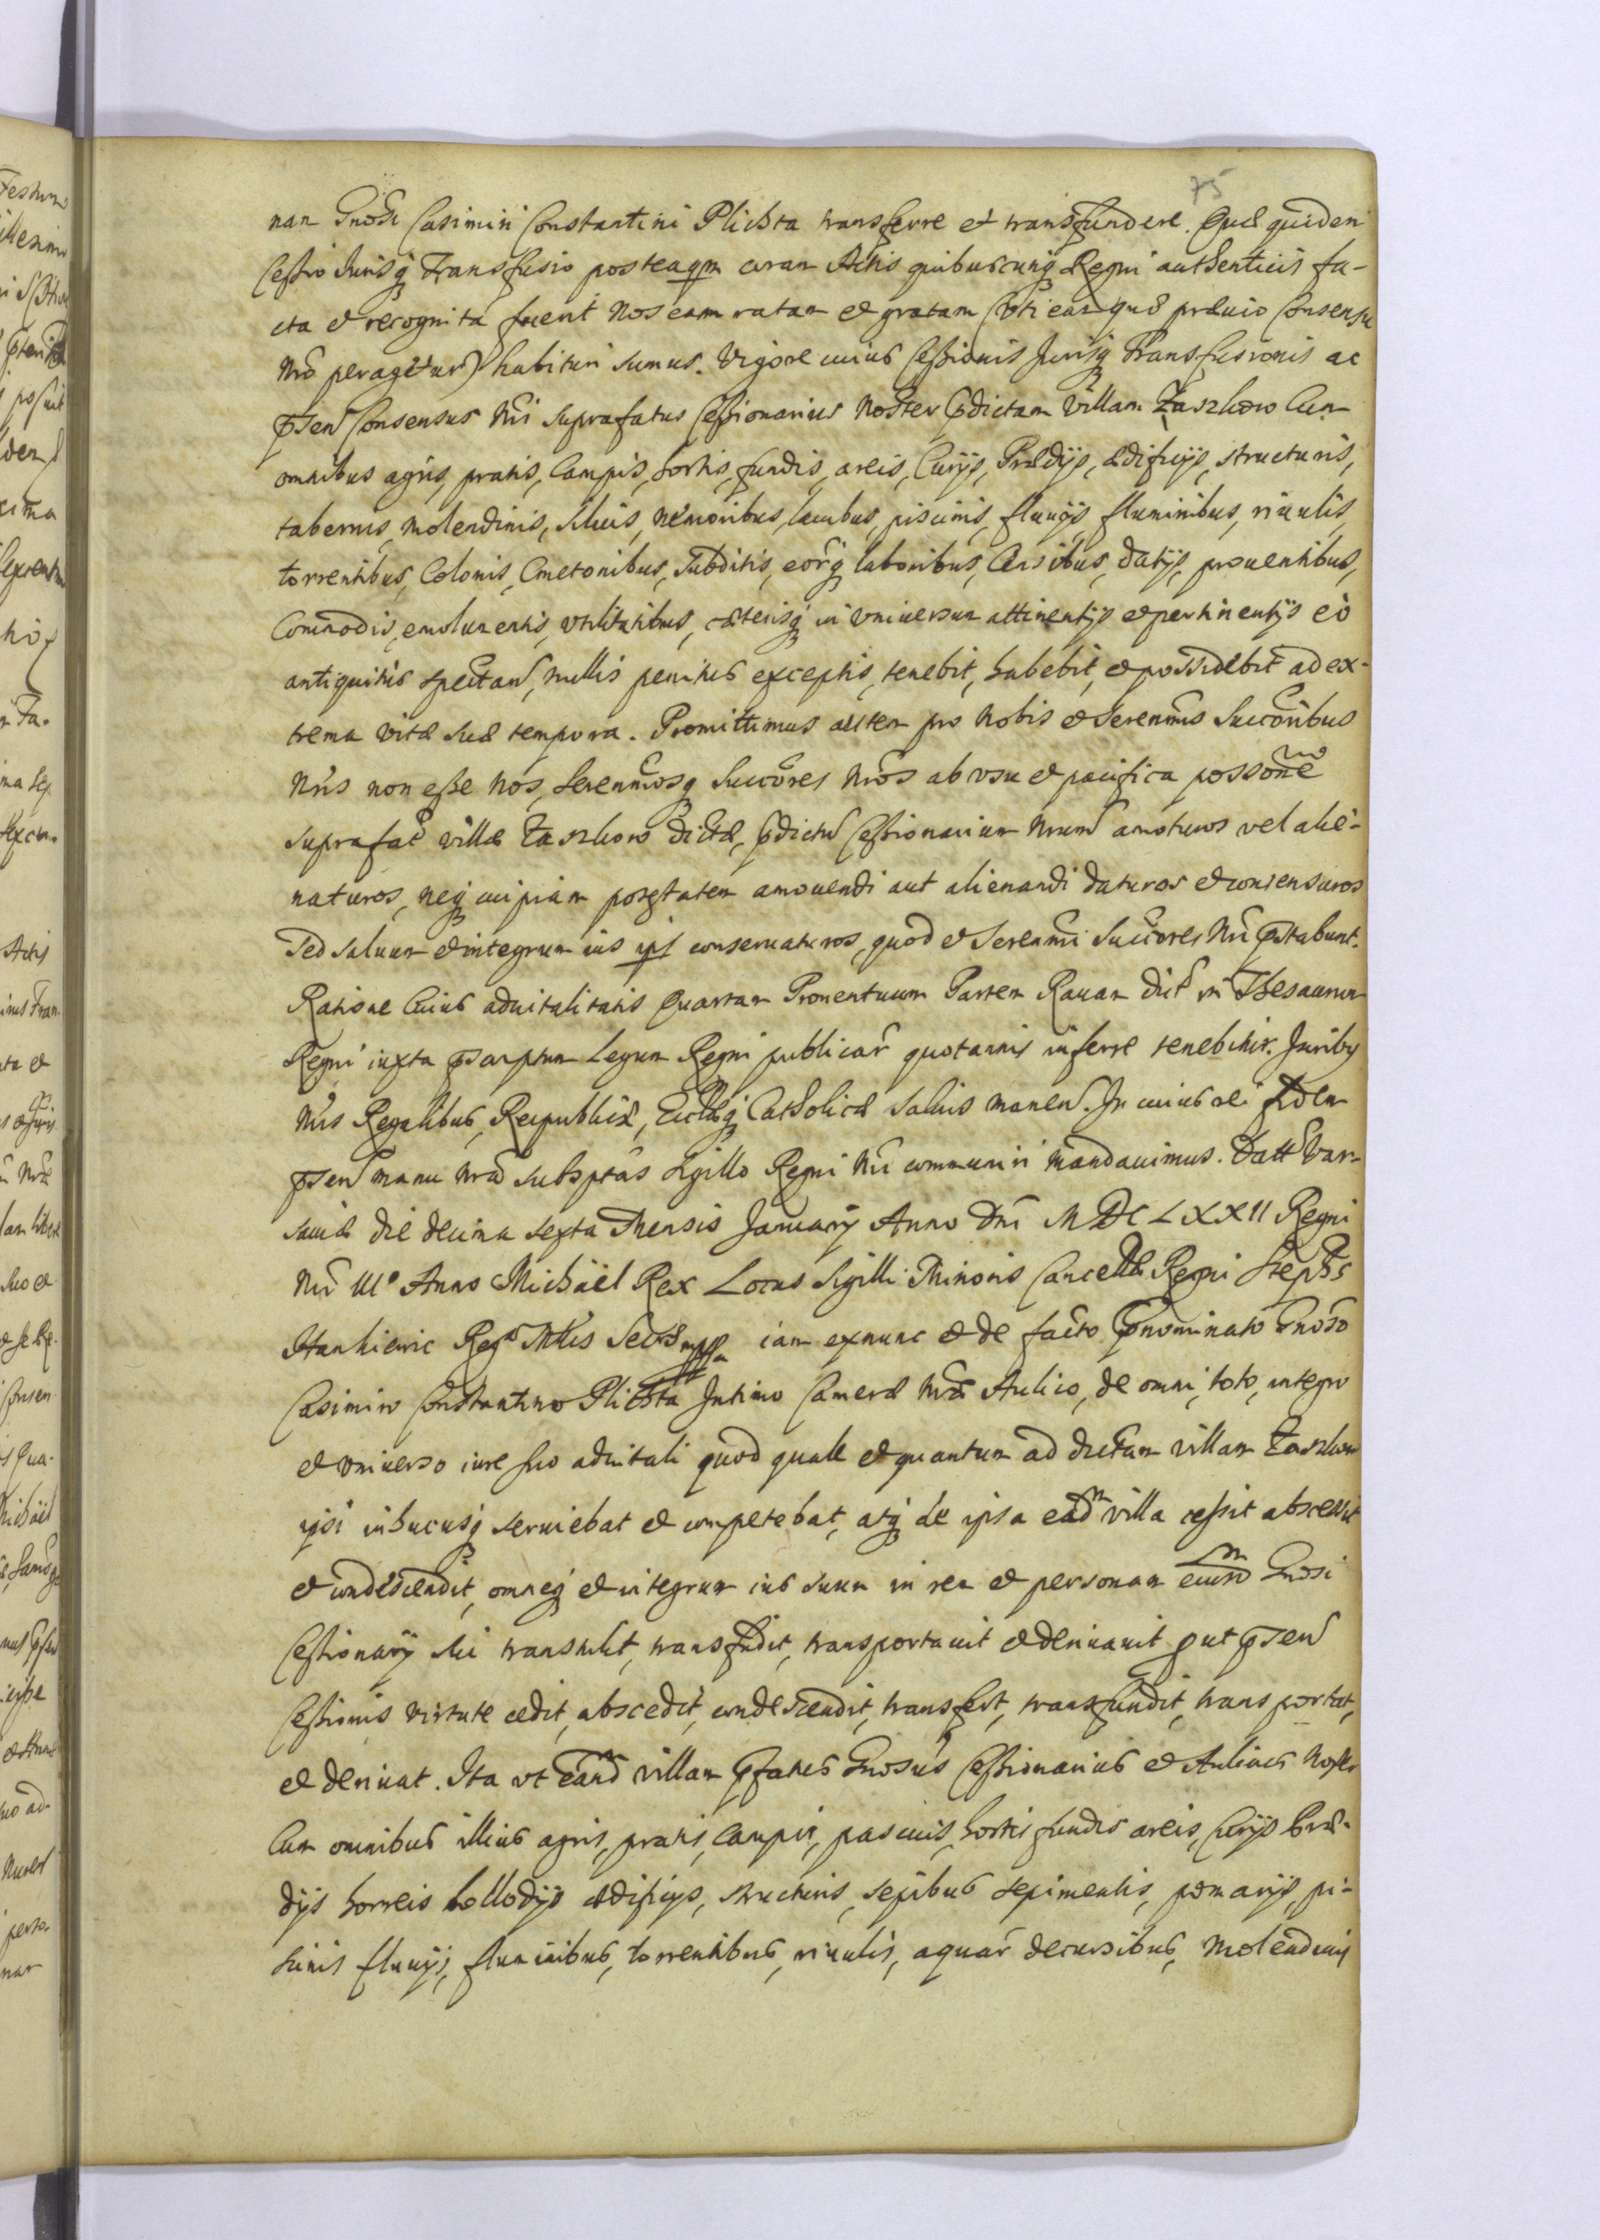 75
nan Gnosi Casimiri Constantini Plichta transferre et transfundere. Quæ quidem
Cessio Jurisq Transfusio posteaqm coram Actis quibuscunq Regni authenticis fa-
cta et recognita fuerit Nos eam ratam et gratam (uti eam quæ prævio Consensu
Nro peragetur) habituri sumus. Vigore cuius Cessionis Jurisq Transfusionis ac
pnsen Consensus Nri suprafatus Cessionarius Noster pdictam Villam Zaszkow Cum
omnibus agris, pratis, Campis, hortis, fundis, areis, Curijs, Prædijs, ædificijs, structuris,
tabernis, molendinis, siluis, nemoribus, lacubus, piscinis, fluuijs, fluminibus, riuulis,
torrentibus, Colonis, Cmetonibus, Subditis, eorq laboribus, Censibus, datijs, prouentibus,
Commodis, emolumentis, vtilitatibus, cæterisq in vniuersum attinentijs et pertinentijs eo
antiquitus spectan, nullis penitus exceptis, tenebit, habebit, et possidebit ad ex-
trema vitæ suæ tempora. Promittimus autem pro Nobis et Serenmis Succoribus
Nris non esse Nos, Serenmosq Succores Nros ab vsu et pacifica possone
suprafat villæ Zaszkow dictæ, pdictu Cessionarium Nrum amoturos vel alie-
naturos, neq cuipiam potestatem amouendi aut alienandi daturos et consensuros
Sed saluum et integrum ius ipsi conseruaturos, quod et Serenmi Succores Nri pstabunt.
Ratione Cuius aduitalitatis Quartam Prouentuum Partem Rauam dict in Thesaurum
Regni iuxta pscriptum Legum Regni publicar quotannis inferre tenebitur. Juribq
Nris Regalibus, Reipublicæ, Eccliæq Catholicæ saluis manen. In cuius rei fidem
pnsen manu Nra subsptas Sigillo Regni Nri communiri mandauimus. Datt Var-
sauiæ die decima sexta Mensis January Anno Dni MDCLXXII Regni
Nri IIIo Anno Michaël Rex Locus Sigilli Minoris Cancellæ Regni Stephs
Hankiewic Regæ Mttis Secrs mppa iam exnunc et de facto pnominato Gnoso
Casimiro Constantino Plichta Intimo Cameræ Nræ Aulico, de omni, toto, integro
et vniuerso iure suo aduitali quod quale et quantum ad dictam villam Zaszkow
ipsi inhucusq seruiebat et competebat, atq de ipsa eadm villa cessit abscessit
et condescendit, omneq et integrum ius suum in rem et personam eiusdm Gnosi
Cessionarij sui transtulit, transfudit, transportauit et deriuauit put pnsen
Cessionis virtute cedit, abscedit, condescendit, transfert, transfundit, transportat,
et deriuat. Ita vt eand villam pfatus Gnosus Cessionarius et Aulicus Noster
Cum omnibus illius agris, pratis, campis, pascuis, hortis fundis areis, Curijs Præ-
dijs horreis bollodijs ædificijs, structuris, sepibus sepimentis, pomarijs, pi-
scinis fluuijs, fluminibus, torrentibus, riuulis, aquar decursibus, Molendinis